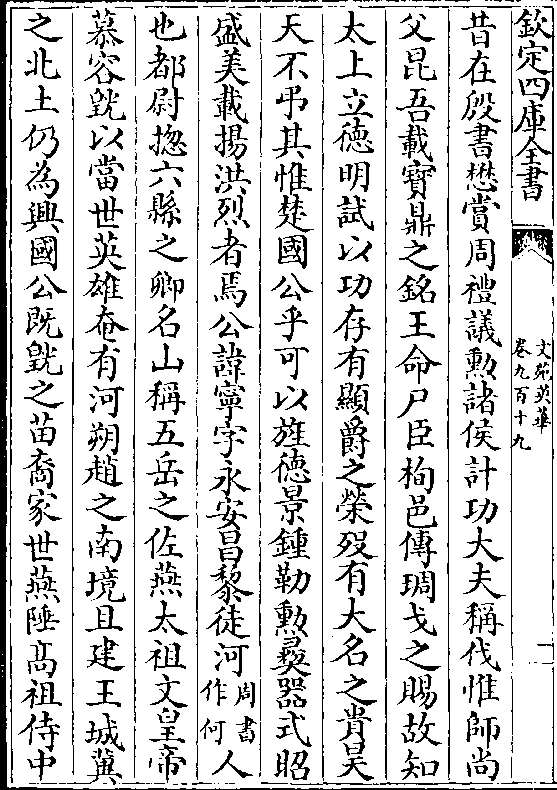 欽定四庫全書
文苑英華
卷九百十九
二
昔在殷書懋賞周禮議勲諸侯計功大夫稱伐惟師尚
父昆吾載寳鼎之銘王命尸臣栒邑傳琱戈之賜故知
太上立德明試以功存有顯爵之榮歿有大名之貴昊
天不弔其惟楚國公乎可以旌德景鍾勒勲彞器式昭
盛美載揚洪烈者焉公諱寧字永安昌黎徒河周書作何人
也都尉揔六縣之卿名山稱五岳之佐燕太祖文皇帝
慕容皝以當世英雄奄有河朔趙之南境且建王城冀
之北土仍為興國公既皝之苗裔家世燕陲髙祖侍中